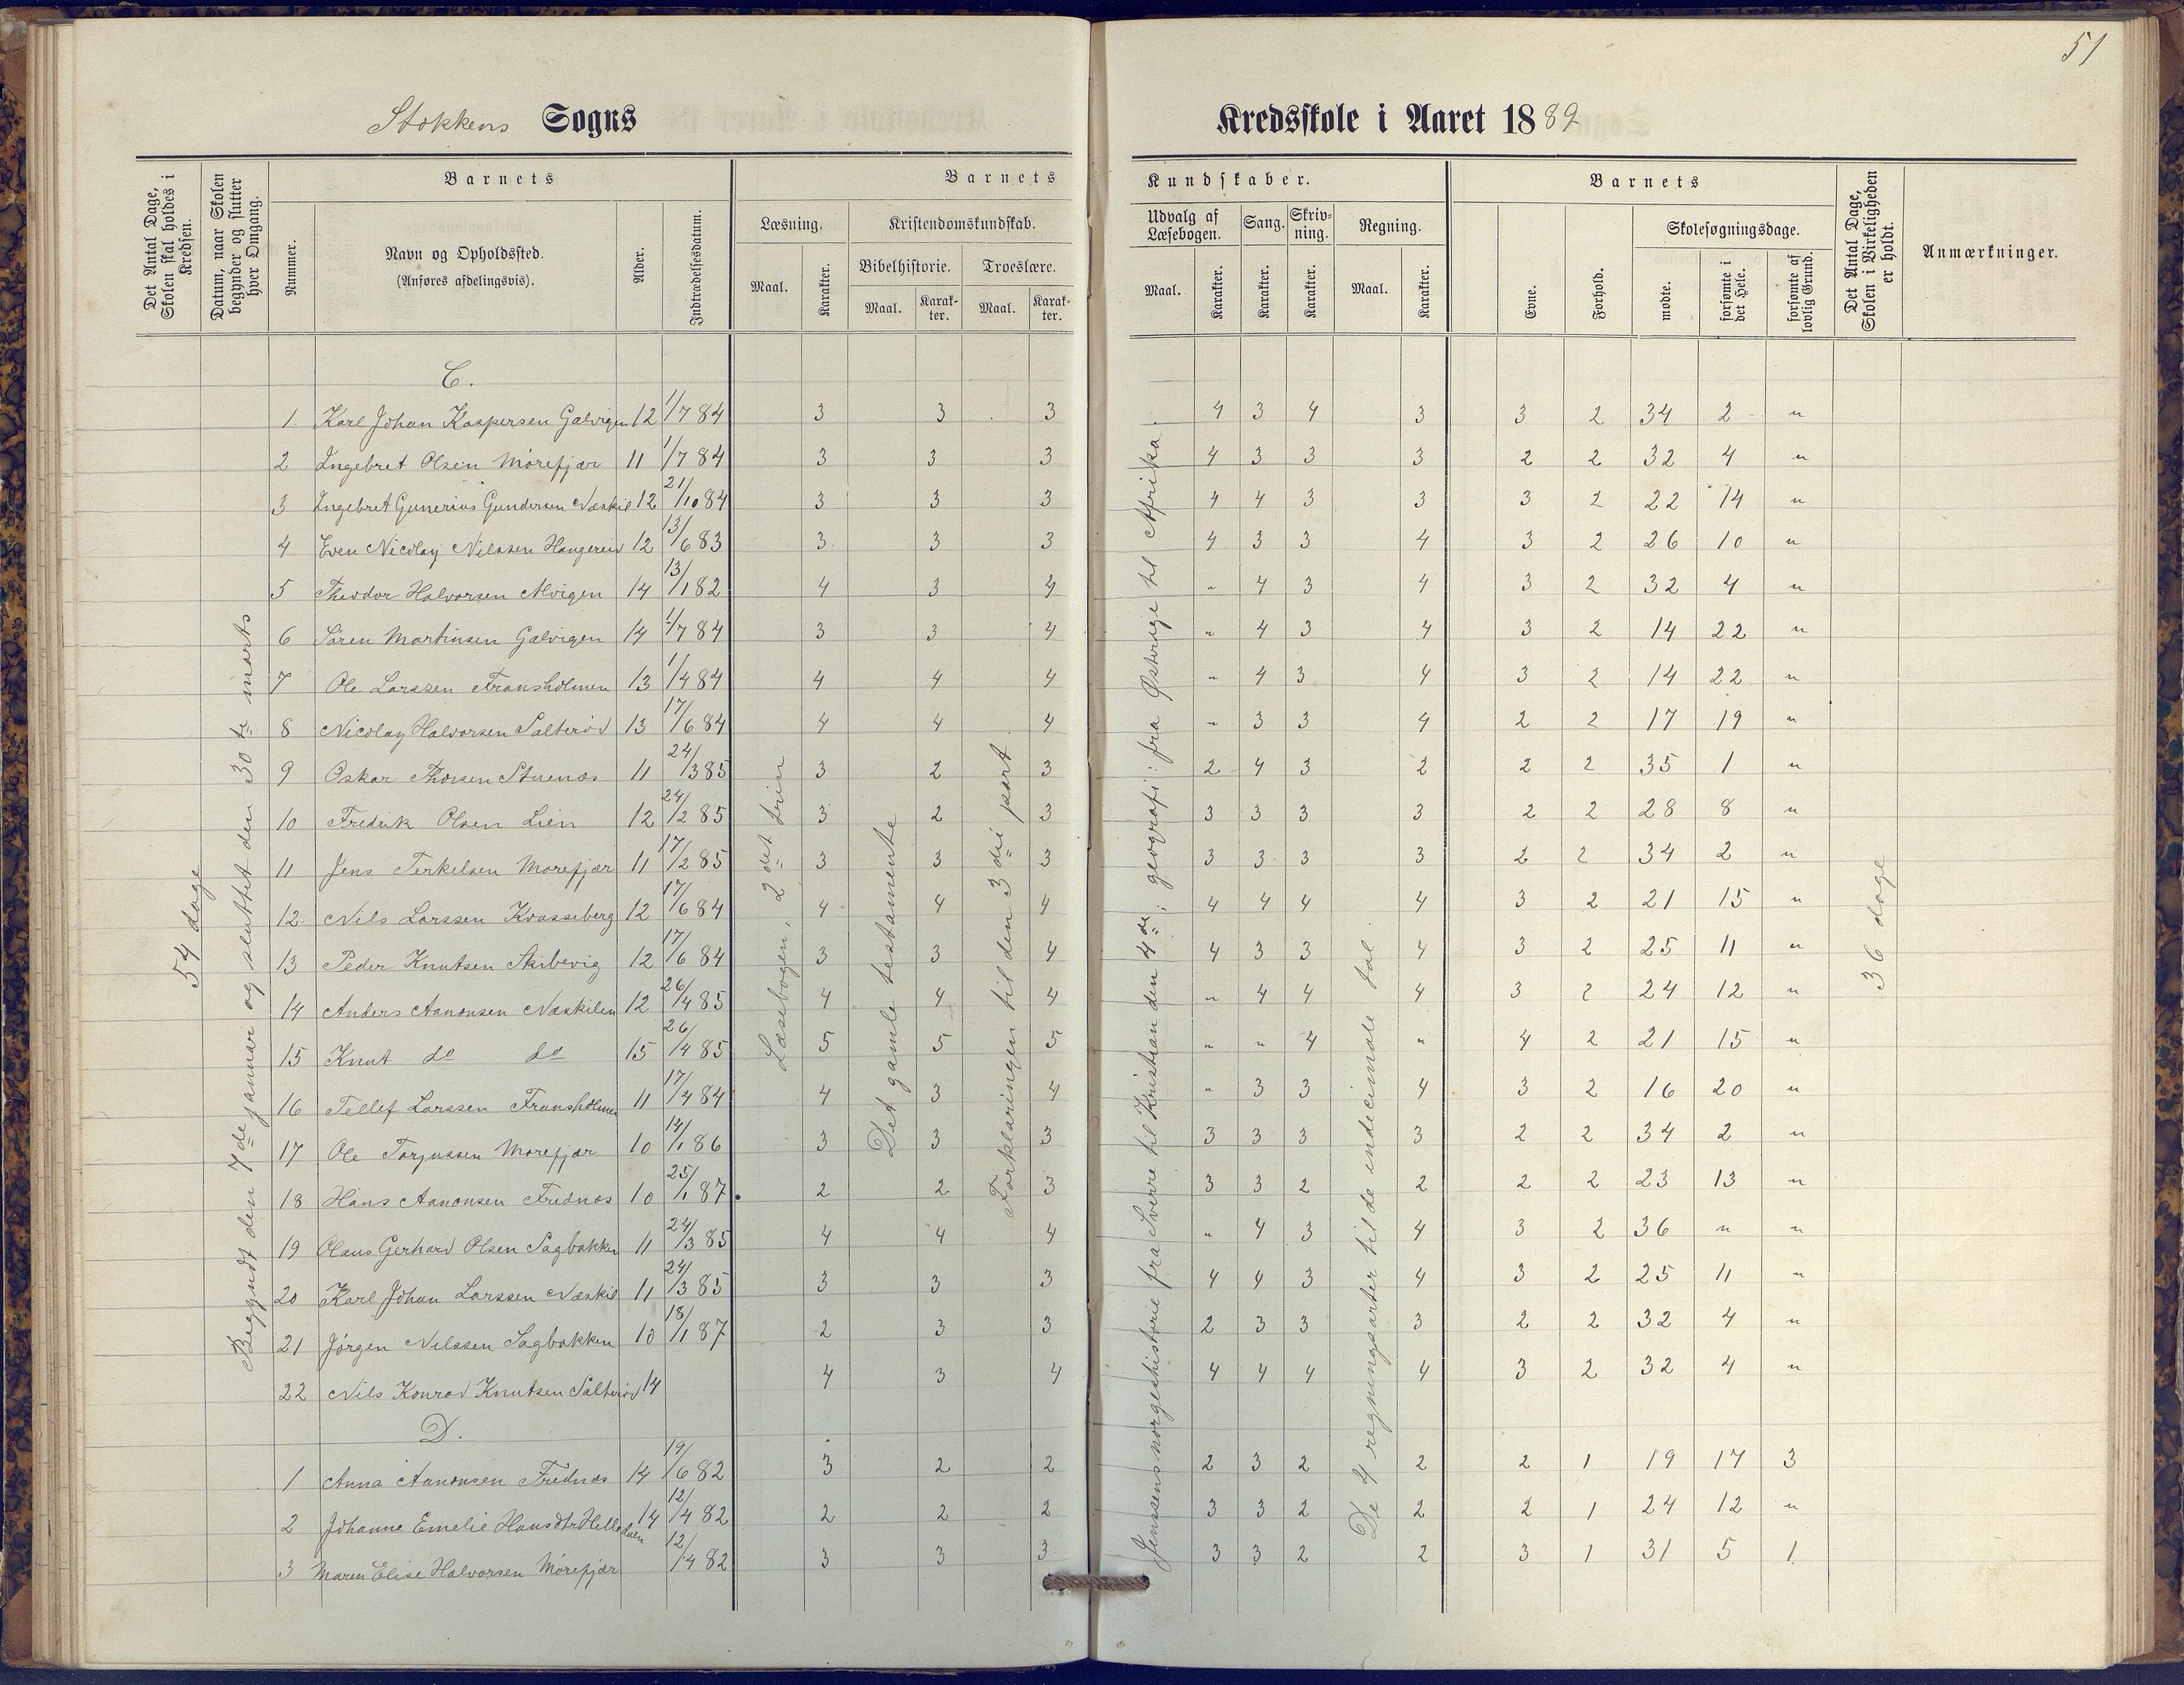 51
Stokkens Sogns Kredsskole i Aaret 1889
Det Antal Dage, Skolen skal holdes i Kredsen.
Datum, naar Skolen begynder og slutter hver Omgang.
Barnets
Nummer.
Navn og Opholdssted.
(Anføres afdelingsvis).
Alder.
Indtrædelsesdatum.
Barnets Kundskaber.
Læsning.
Maal.
Karakter.
Kristendomskundskab.
Bibelhistorie.
Maal.
Karakter.
Troeslære.
Maal.
Karakter.
Udvalg af Læsebogen.
Maal.
Karakter.
Sang.
Karakter.
Skrivning.
Karakter.
Regning.
Maal.
Karakter.
Barnets
Evne.
Forhold.
Skolesøgningsdage.
mødte.
forsømte i det Hele.
forsømte af lovlig Grund.
Det Antal Dage, Skolen i Virkeligheden er holdt.
Anmærkninger.
54 dage
Begyndt den 7de januar og sluttet den 30te marts
Læsebogen, 2det trin
Det gamle testamente
Forklaringen til den 3die part
Jensens norgeshistorie fra Sverre til Kristian den 4de; geografi: fra Østerige til Afrika.
De 4 regningsarter til de indecimale tal.
36 dage
C.
1. Karl Johan Kaspersen Galvigen 12 1/7 84 3 3 3 4 3 4 3 3 2 34 2 "
2 Ingebret Olsen Mórefjær 11 1/7 84 3 3 3 4 3 3 3 2 2 32 4 "
3 Ingebret Gunerius Gundersen Næskil 12 21/10 84 3 3 3 4 4 3 3 3 2 22 14 "
4 Even Nicolay Nilssen Haugereid 12 13/6 83 3 3 3 4 3 3 4 3 2 26 10 "
5 Theodor Halvorsen Alvigen 14 13/1 82 4 3 4 " 4 3 4 3 2 32 4 "
6 Søren Martinsen Galvigen 14 1/7 84 3 3 4 " 4 3 4 3 2 14 22 "
7 Ole Larssen Fransholmen 13 1/4 84 4 4 4 " 4 3 4 3 2 14 22 "
8 Nicolay Halvorsen Salterød 13 17/6 84 4 4 4 " 3 3 4 2 2 17 19 "
9 Oskar Thorsen Stuenæs 11 24/3 85 3 2 3 2 4 3 2 2 2 35 1 "
10 Fredrik Olsen Lien 12 24/2 85 3 2 3 3 3 3 3 2 2 28 8 "
11 Jens Terkelsen Morefjær 11 17/2 85 3 3 3 3 3 3 3 2 2 34 2 "
12. Nils Larssen Kvasseberg 12 17/6 84 4 4 4 4 4 4 4 3 2 21 15 "
13 Peder Knutsen Skibevig 12 17/6 84 3 3 4 4 3 3 4 3 2 25 11 "
14 Anders Aanonsen Næskilen 12 26/4 85 4 4 4 " 4 4 4 3 2 24 12 "
15 Knut do do 15 26/4 85 5 5 5 " " 4 " 4 2 21 15 "
16 Tellef Larssen Fransholmen 11 17/4 84 4 3 4 " 3 3 4 3 2 16 20 "
17 Ole Torjussen Morefjær 10 14/1 86 3 3 3 3 3 3 3 2 2 34 2 "
18 Hans Aanonsen Frednæs 10 25/1 87. 2 2 3 3 3 2 2 2 2 23 13 "
19 Olaus Gerhard Olsen Sagbakken 11 24/3 85 4 4 4 " 4 3 4 3 2 36 " "
20 Karl Johan Larssen Næskil 11 24/3 85 3 3 3 4 4 3 4 3 2 25 11 "
21 Jórgen Nilssen Sagbakken 10 18/1 87 2 3 3 2 3 3 3 2 2 32 4 "
22 Nils Konrad Knutsen Salterød 14 4 3 4 4 4 4 4 3 2 32 4 "
D.
1 Anna Aanonsen Frednæs 14 19/6 82 3 2 2 2 3 2 2 2 1 19 17 3
2 Johanne Emelie Hansdtr 14 12/4 82 2 2 2 3 3 2 2 2 1 24 12 "
3 Maren Elise Halvorsen Mórefjær 12/4 82 3 3 3 3 3 2 2 3 1 31 5 1